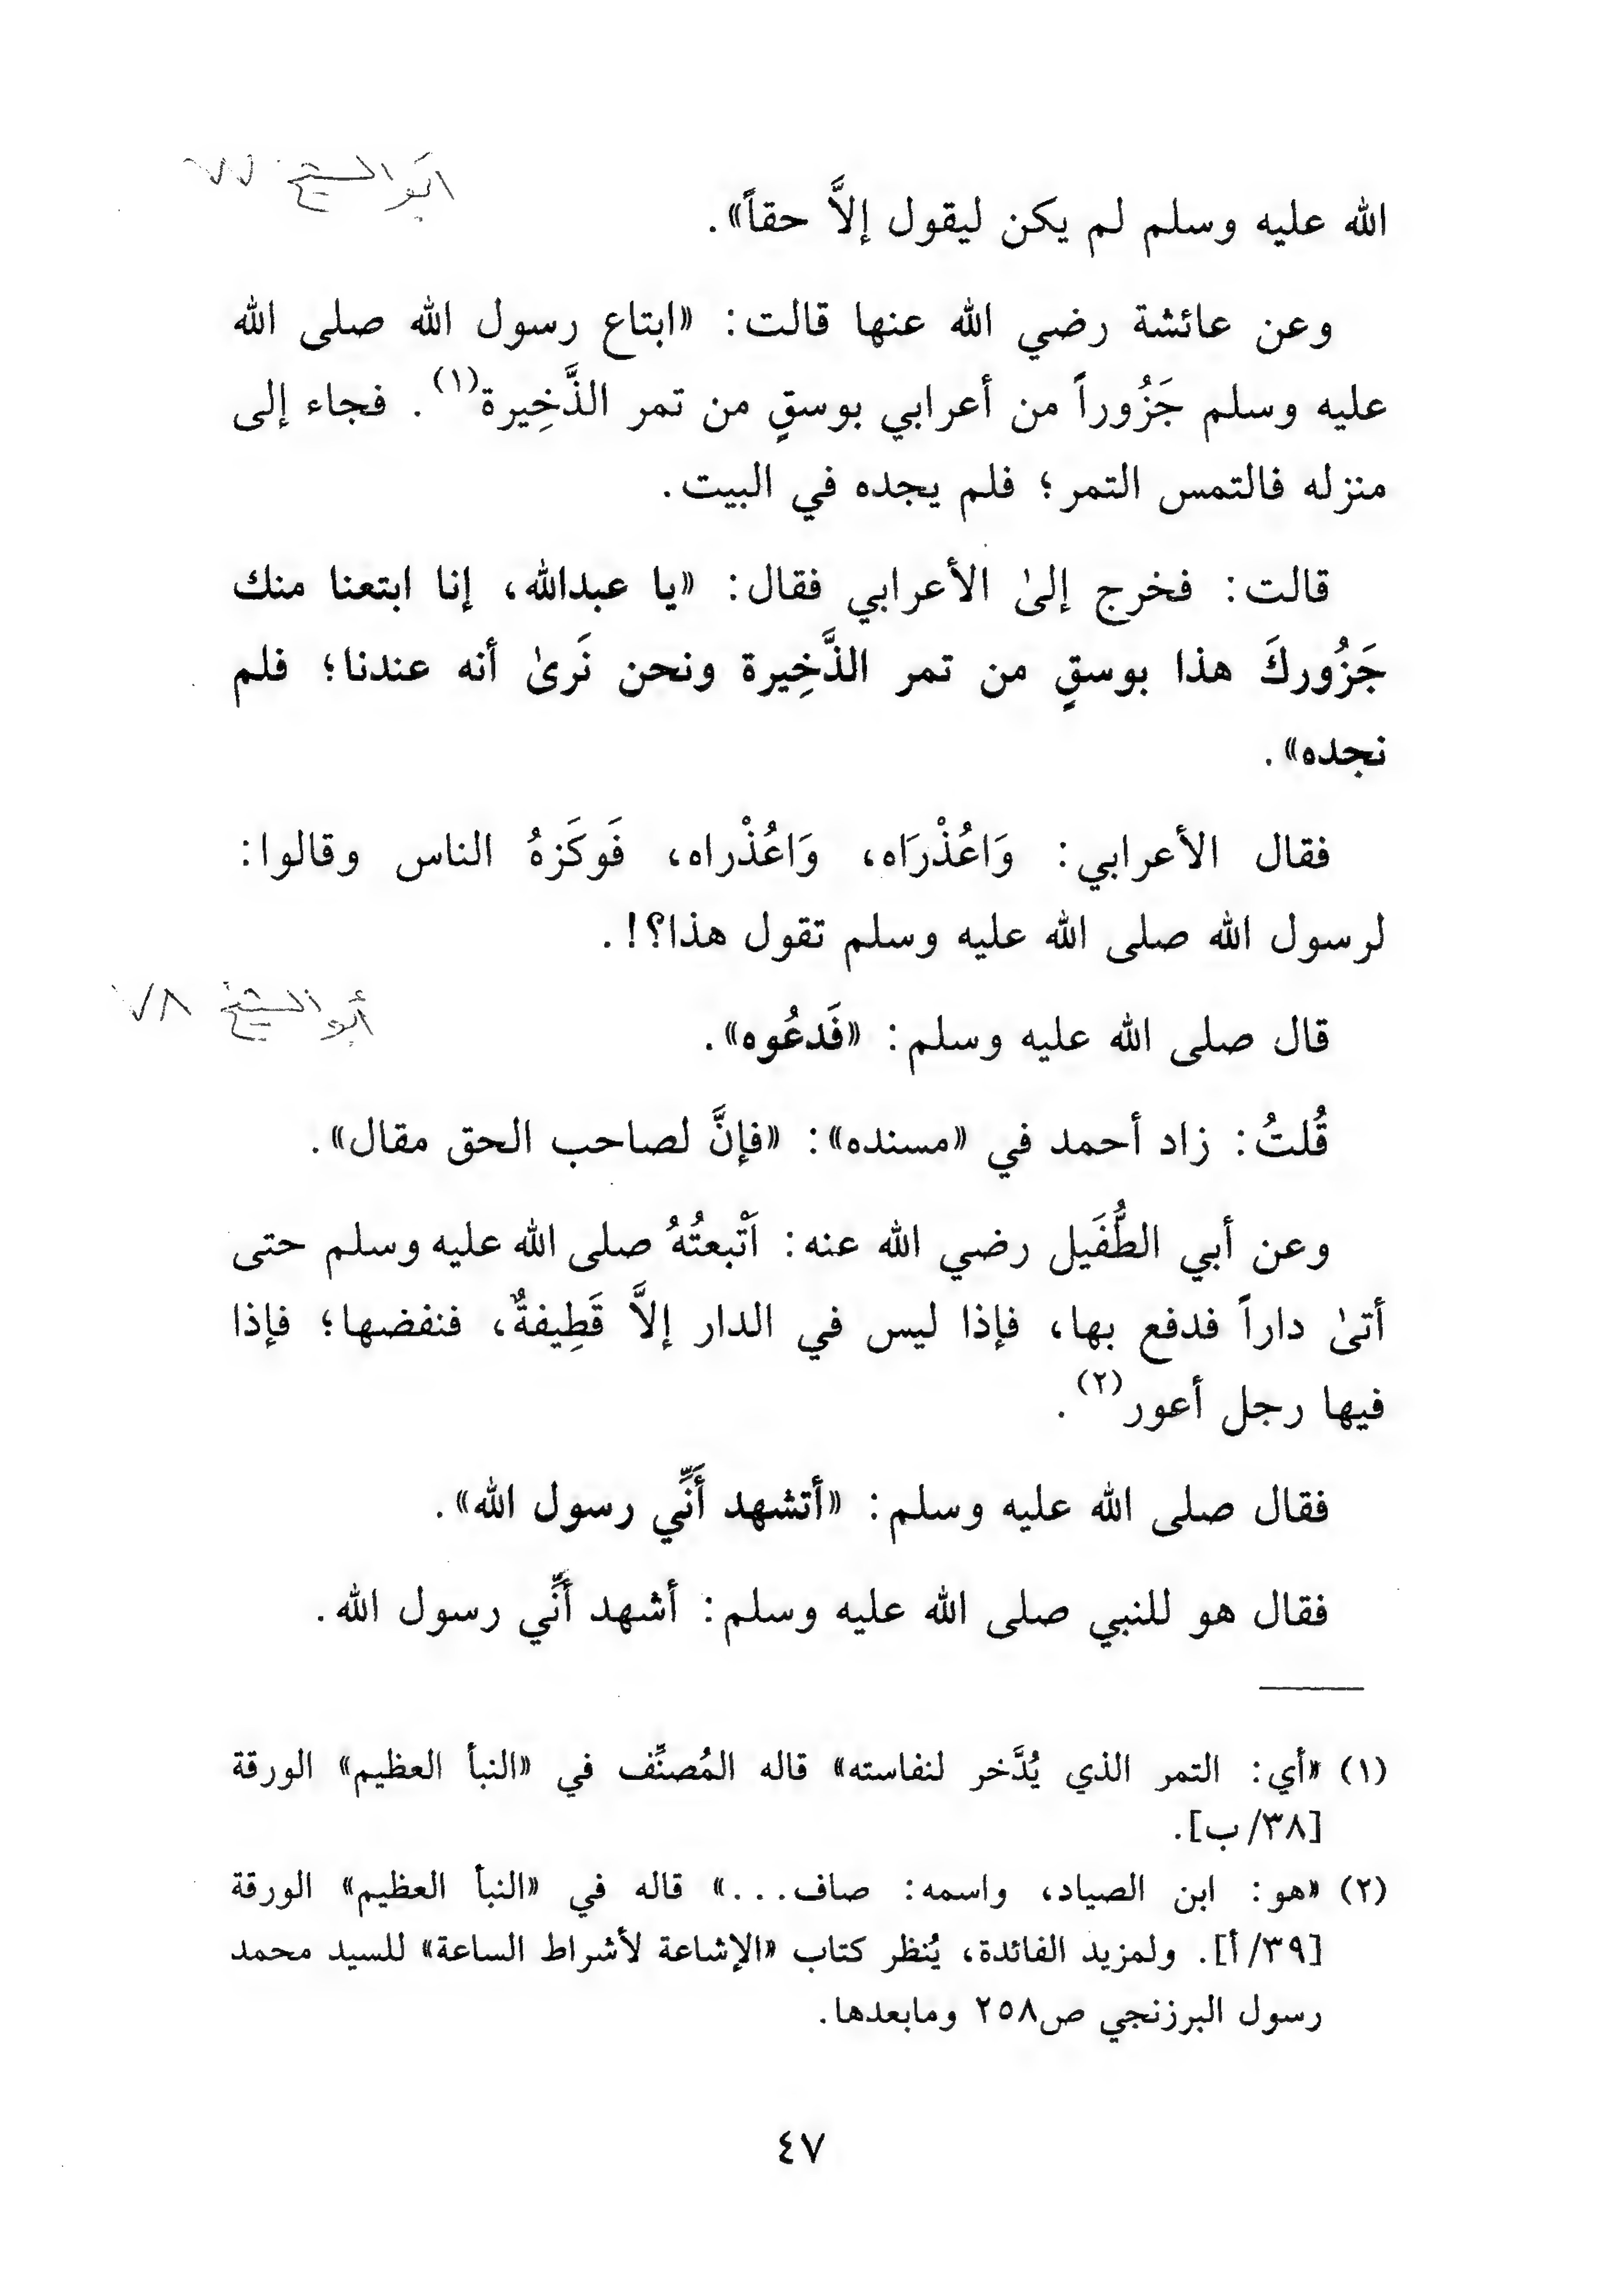 أبو الشيخ ٧٧
الله عليه وسلم لم يكن ليقول إلاَّ حقاً».
وعن عائشة رضي الله عنها قالت: «ابتاع رسول الله صلى الله
عليه وسلم جَزُوراً من أعرابي بوسقٍ من تمر الذَّخِيرة(١). فجاء إلى
منزله فالتمس التمر؛ فلم يجده في البيت.
قالت: فخرج إلىٰ الأعرابي فقال: «يا عبدالله، إنا ابتعنا منك
جَزُوركَ هذا بوسقٍ من تمر الذَّخِيرة ونحن نَرىٰ أنه عندنا؛ فلم
نجده».
فقال الأعرابي: وَاعُذْرَاه، وَاعُذْراه، فَوكَزهُ الناس وقالوا:
لرسول الله صلى الله عليه وسلم تقول هذا؟!.
أبو الشيخ ٧٨
قال صلى الله عليه وسلم: «فَدعُوه».
قُلتُ: زاد أحمد في «مسنده»: «فإنَّ لصاحب الحق مقال».
وعن أبي الطُّفَيل رضي الله عنه: اَتْبعتُهُ صلى الله عليه وسلم حتى
أتىٰ داراً فدفع بها، فإذا ليس في الدار إلاَّ قَطِيفةٌ، فنفضها؛ فإذا
فيها رجل أعور(٢).
فقال صلى الله عليه وسلم: «أتشهد أَنِّي رسول الله».
فقال هو للنبي صلى الله عليه وسلم: أشهد أَنِّي رسول الله.
(١) «أي: التمر الذي يُدَّخر لنفاسته» قاله المُصنِّف في «النبأ العظيم» الورقة
[٣٨/ ب].
(٢) «هو: ابن الصياد، واسمه: صاف...» قاله في «النبأ العظيم» الورقة
[٣٩/ أ]. ولمزيد الفائدة، يُنظر كتاب «الإشاعة لأشراط الساعة» للسيد محمد
رسول البرزنجي ص٢٥٨ ومابعدها.
٤٧